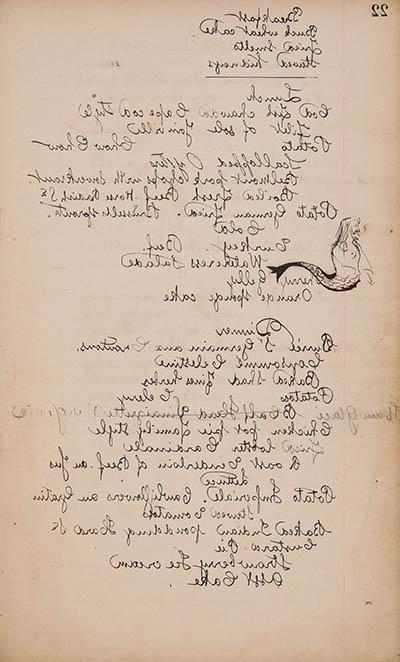 22
Breakfast
Buck wheat cake
Fried Smelts
Stewed Kidneys
Lunch
Cod fish chowder Cape cod style
Filet of sole Joinville
Potato Chow Chow
Scalloped Oysters
Belmont pork chops with Sourkraut
Boiled Fresh Beef Horse Radish Se
Potato German Fried. Brussels sprouts.
Cold
Turkey Beef.
Watercress Salade
Cherry Jelly
Orange sponge cake
Dinner
Purée St Germain and Croutons
Consommé Celestine
Baked Shad Fines herbes
Potatoes Celery
Ham glacé Calf Head Vinaigrette
Chicken pot pie family style
Fried lobster Cardinale
Roast Tenderloin of Beef. au Jus
Lettuce
Potato Imperiale. Cauliflowers au Gratin
Stewed Tomatoes
Baked Indian pudding Hard Se
Custard Pie
Strawberry Ice cream
Asst Cake.